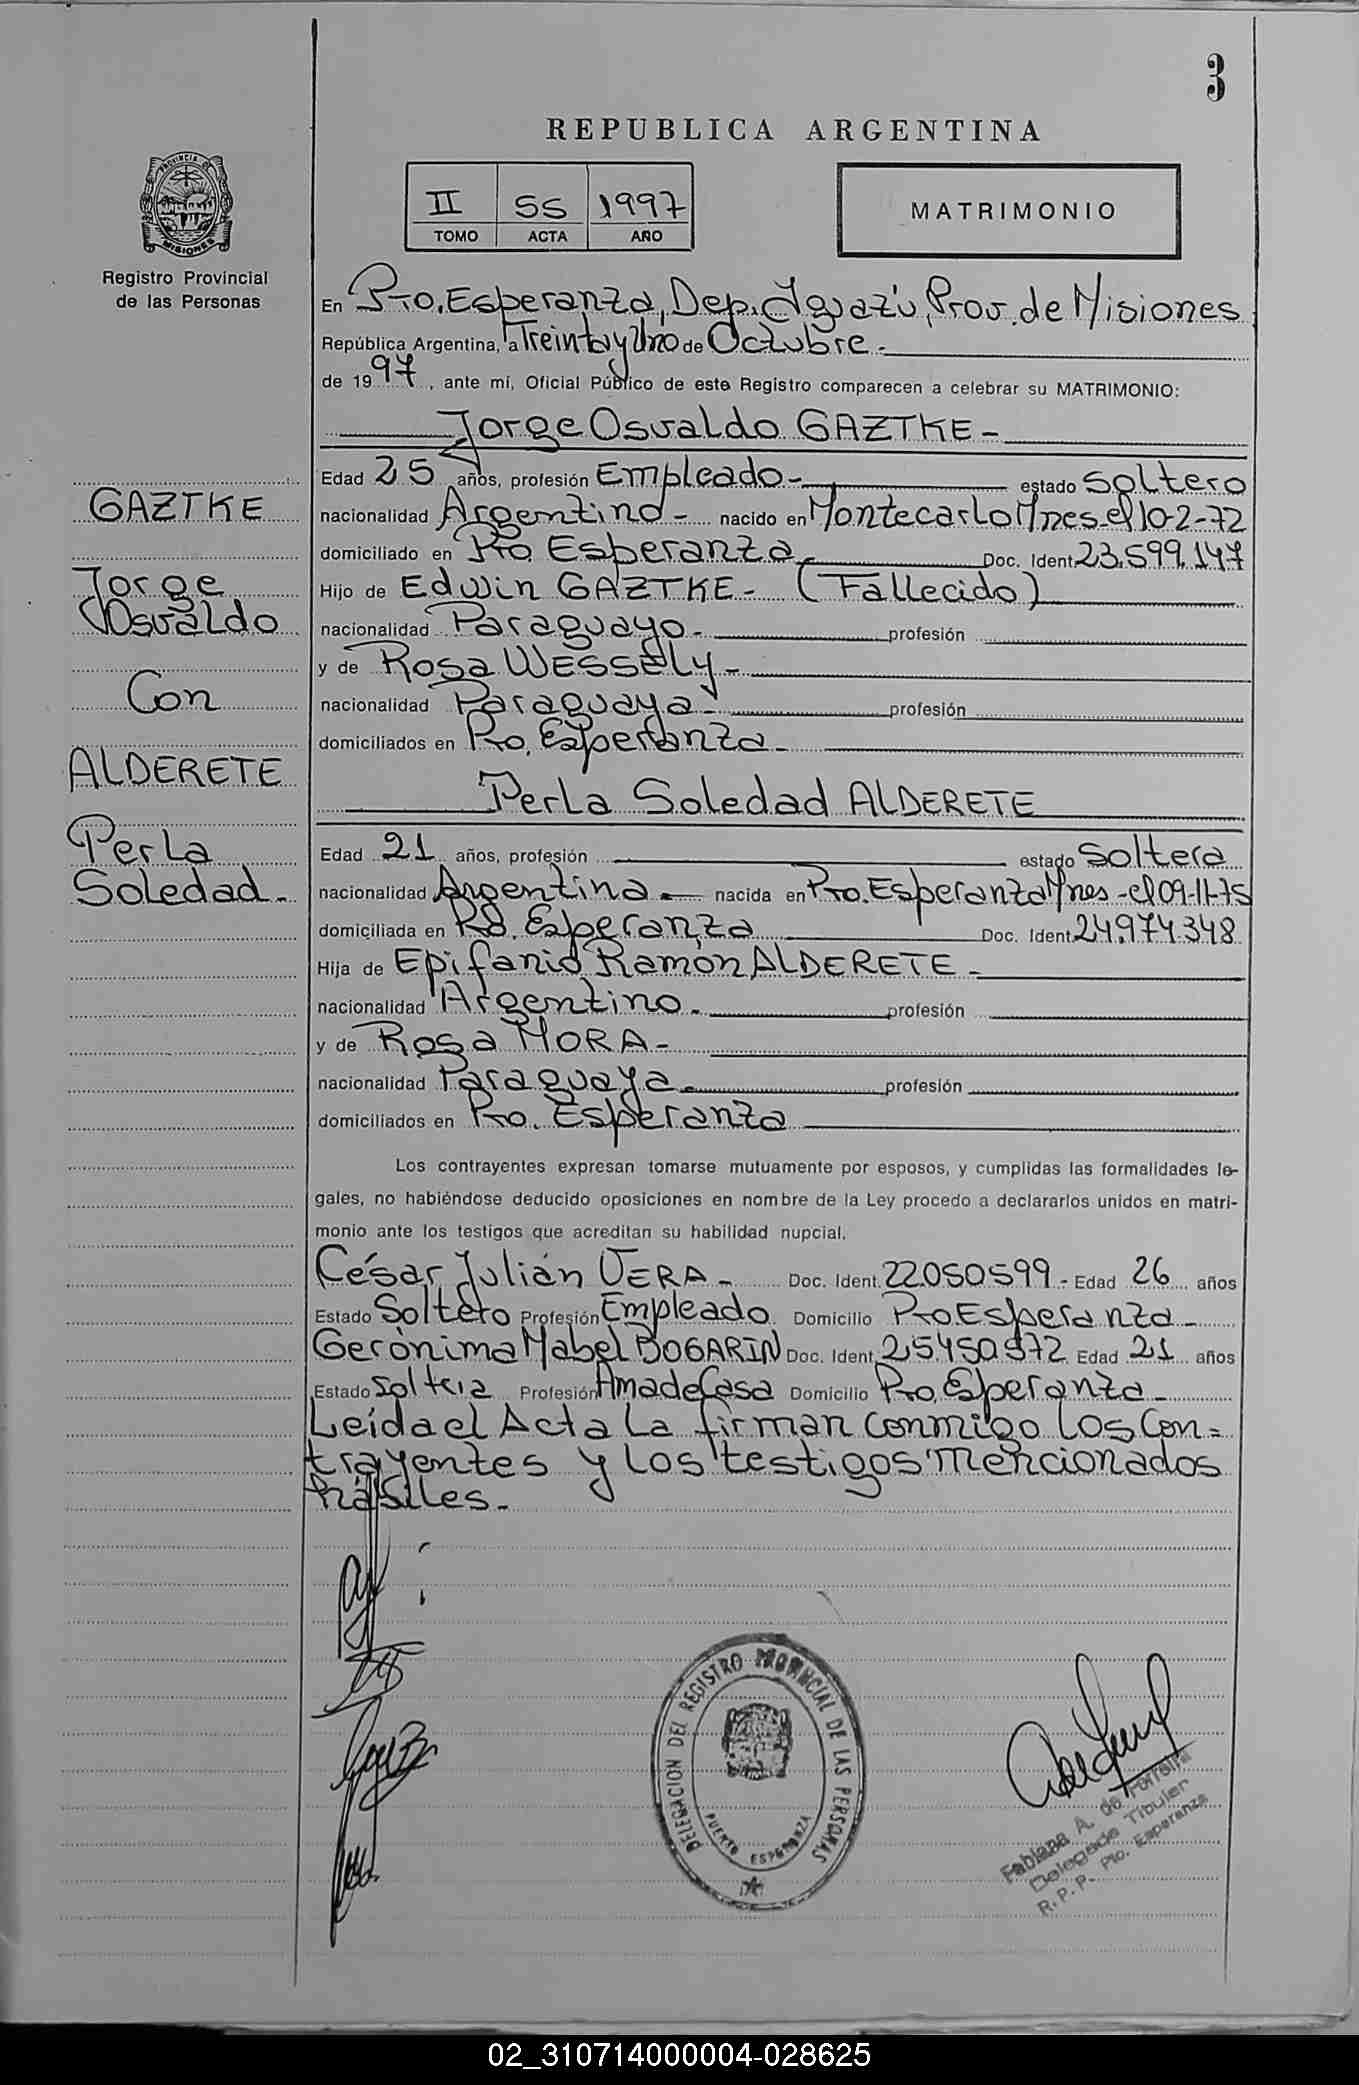 3
REPUBLICA ARGENTINA
PROVINCIA DE MISIONES
Registro Provincial
de las Personas
II SS 1997
TOMO ACTA AÑO
MATRIMONIO
En Pto. Esperanza, Dep. Iguazú, Prov. de Misiones
República Argentina, a Treinta y Uno de Octubre.-
de 1997, ante mí, Oficial Público de este Registro comparecen a celebrar su MATRIMONIO:
Jorge Osvaldo GAZTKE-
Edad 25 años, profesión Empleado- estado Soltero
nacionalidad Argentino- nacido en Montecarlo Mnes-el 10-2-72
domiciliado en Pto Esperanza Doc. Ident. 23.599.147
Hijo de Edwin GAZTKE- (Fallecido)
nacionalidad Paraguayo- profesión
y de Rosa WESSELY-
nacionalidad Paraguaya- profesión
domiciliados en Pto. Esperanza-
Perla Soledad ALDERETE
Edad 21 años, profesión estado Soltera
nacionalidad Argentina- nacida en Pto. Esperanza Mnes-el 09-11-75
domiciliada en Pto. Esperanza Doc. Ident. 24.974.348
Hija de Epifanio Ramón ALDERETE-
nacionalidad Argentino- profesión
y de Rosa MORA-
nacionalidad Paraguaya- profesión
domiciliados en Pto. Esperanza
Los contrayentes expresan tomarse mutuamente por esposos, y cumplidas las formalidades le-
gales, no habiéndose deducido oposiciones en nombre de la Ley procedo a declararlos unidos en matri-
monio ante los testigos que acreditan su habilidad nupcial.
César Julián VERA- Doc. Ident. 22050599- Edad 26 años
Estado Soltero Profesión Empleado Domicilio Pto Esperanza-
Gerónima Mabel BOGARIN Doc. Ident. 25.450.972 Edad 21 años
Estado Soltera Profesión Ama de Casa Domicilio Pto. Esperanza-
Leída el Acta la firman conmigo los Con=
trayentes y los testigos mencionados
hábiles-
GAZTKE
Jorge
Osvaldo
Con
ALDERETE
Perla
Soledad-
DELEGACION DEL REGISTRO PROVINCIAL DE LAS PERSONAS
PUERTO ESPERANZA
Fabiana A. de Ferreira
Delegada Titular
R.P.P. Pto. Esperanza
02_310714000004-028625